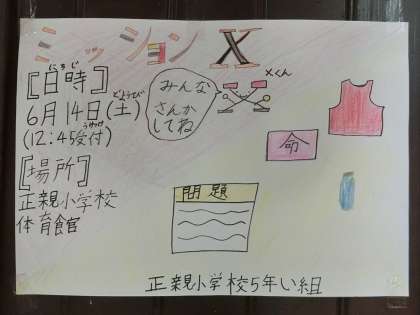 ミッションX
[日時]
にちじ
6月14日(土)
どようび
(12:45受付)
うけつけ
[場所]
正親小学校
体育館
みんな
さんか
してね
Xくん
命
問題
正親小学校5年い組